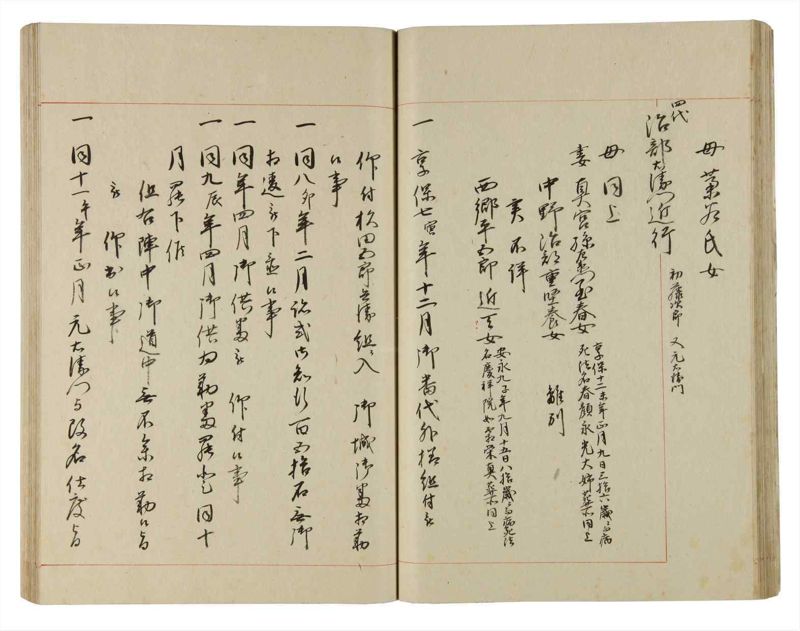 母 葉若氏女
四代
治部右衛門近行
初藤次郎 又元右衛門
母 同上
妻 真宮孫左衛門玄春女
享保十二未年正月九日三拾六歳ニ而病
死法名春顔永光大姉葬所同上
中野治部重堅養女 離別
実不詳
西郷平四郎近天女
安永九子年九月十五日八拾歳ニ而病死法
名慶祥院 栄真葬所同上
一 享保七寅年十二月御當代外様組付被
仰付 田四郎兵衛組ニ入 御城御番相勤
候事
一 同八卯年二月跡式御知行百四拾石無御
相違被下置候事
一 同年四月御供番被 仰付候事
一 同九辰年四月御供相勤番罷登同十
月罷下候
但右陣中御道中無不念相勤候旨
被 仰出候事
一 同十一午年正月元右衛門与改名仕度旨